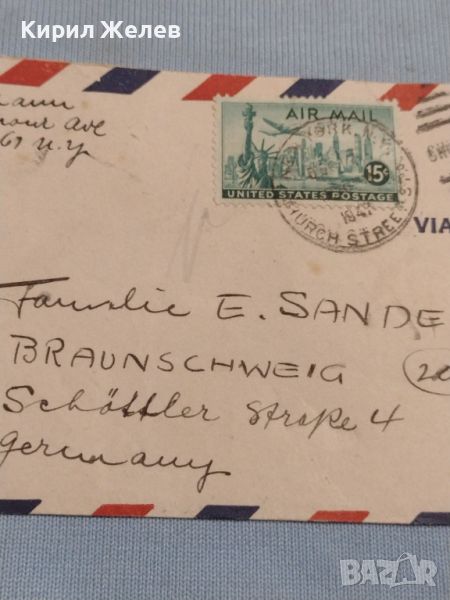 Кирил Желев
mann
mour Ave
67 N.Y
AIR MAIL
15¢
UNITED STATES POSTAGE
YORK, N.Y.
194
CHURCH STREET
VIA
Familie E. SANDE
BRAUNSCHWEIG
20
Schöttler Straße 4
Germany
BAZAR